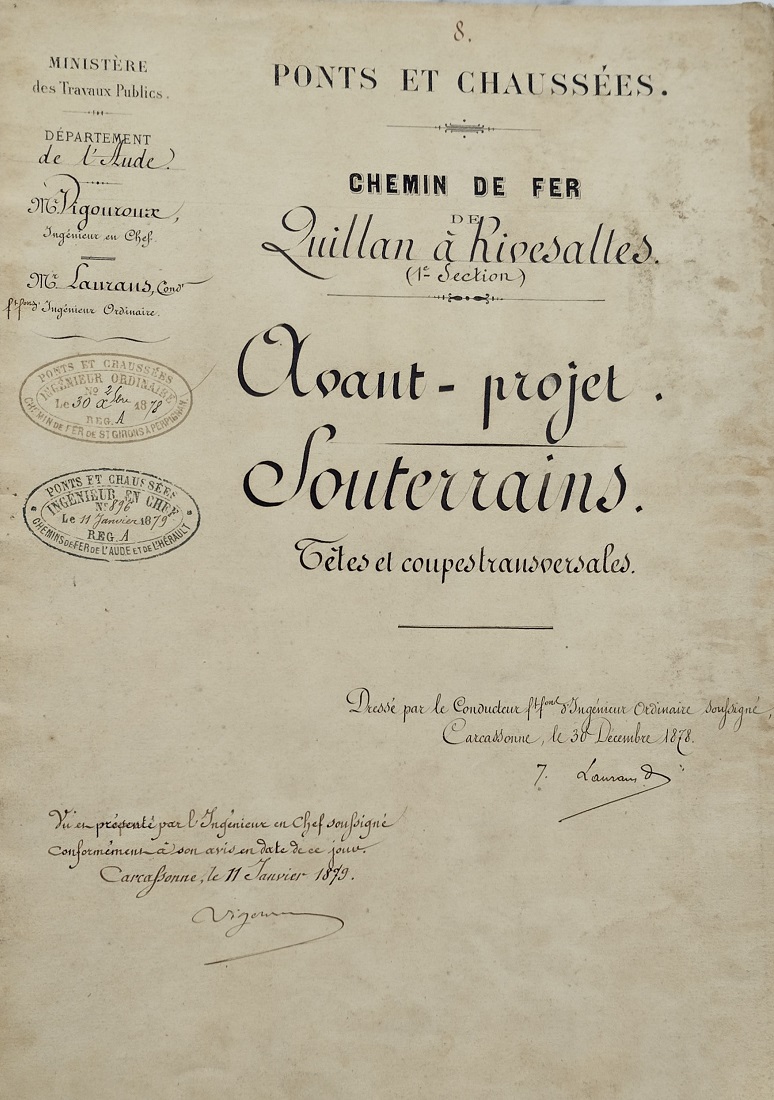 8.
MINISTÈRE
des Travaux Publics.
DÉPARTEMENT
de l'Aude.
Mr. Vigouroux,
Ingénieur en Chef.
Mr. Laurans, Condr
ft. fons d'Ingénieur Ordinaire.
PONTS ET CHAUSSÉES
INGÉNIEUR ORDINAIRE
No 26
Le 30 Xbre 1878
REG. A
CHEMIN DE FER DE ST GIRONS À PERPIGNAN
PONTS ET CHAUSSÉES
INGÉNIEUR EN CHEF
No 896
Le 11 Janvier 1879
REG. A
CHEMINS DE FER DE L'AUDE ET DE L'HÉRAULT
PONTS ET CHAUSSÉES.
CHEMIN DE FER
DE
Quillan à Rivesaltes.
(1e Section)
Avant-projet.
Souterrains.
Têtes et coupes transversales.
Dressé par le Conducteur ft. font d'Ingénieur Ordinaire soussigné,
Carcassonne, le 30 Décembre 1878.
Vu et présenté par l'Ingénieur en Chef soussigné
conformément à son avis en date de ce jour.
Carcassonne, le 11 Janvier 1879.